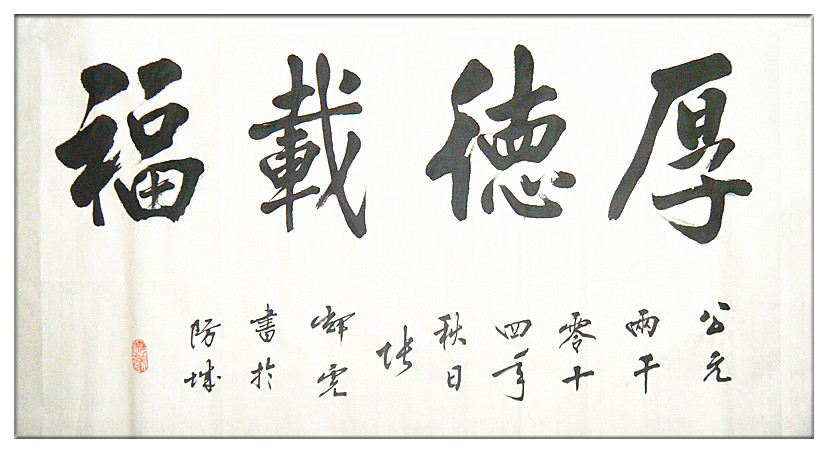 厚德載福
公元
兩千
零十
四年
秋日
张
書於
防城